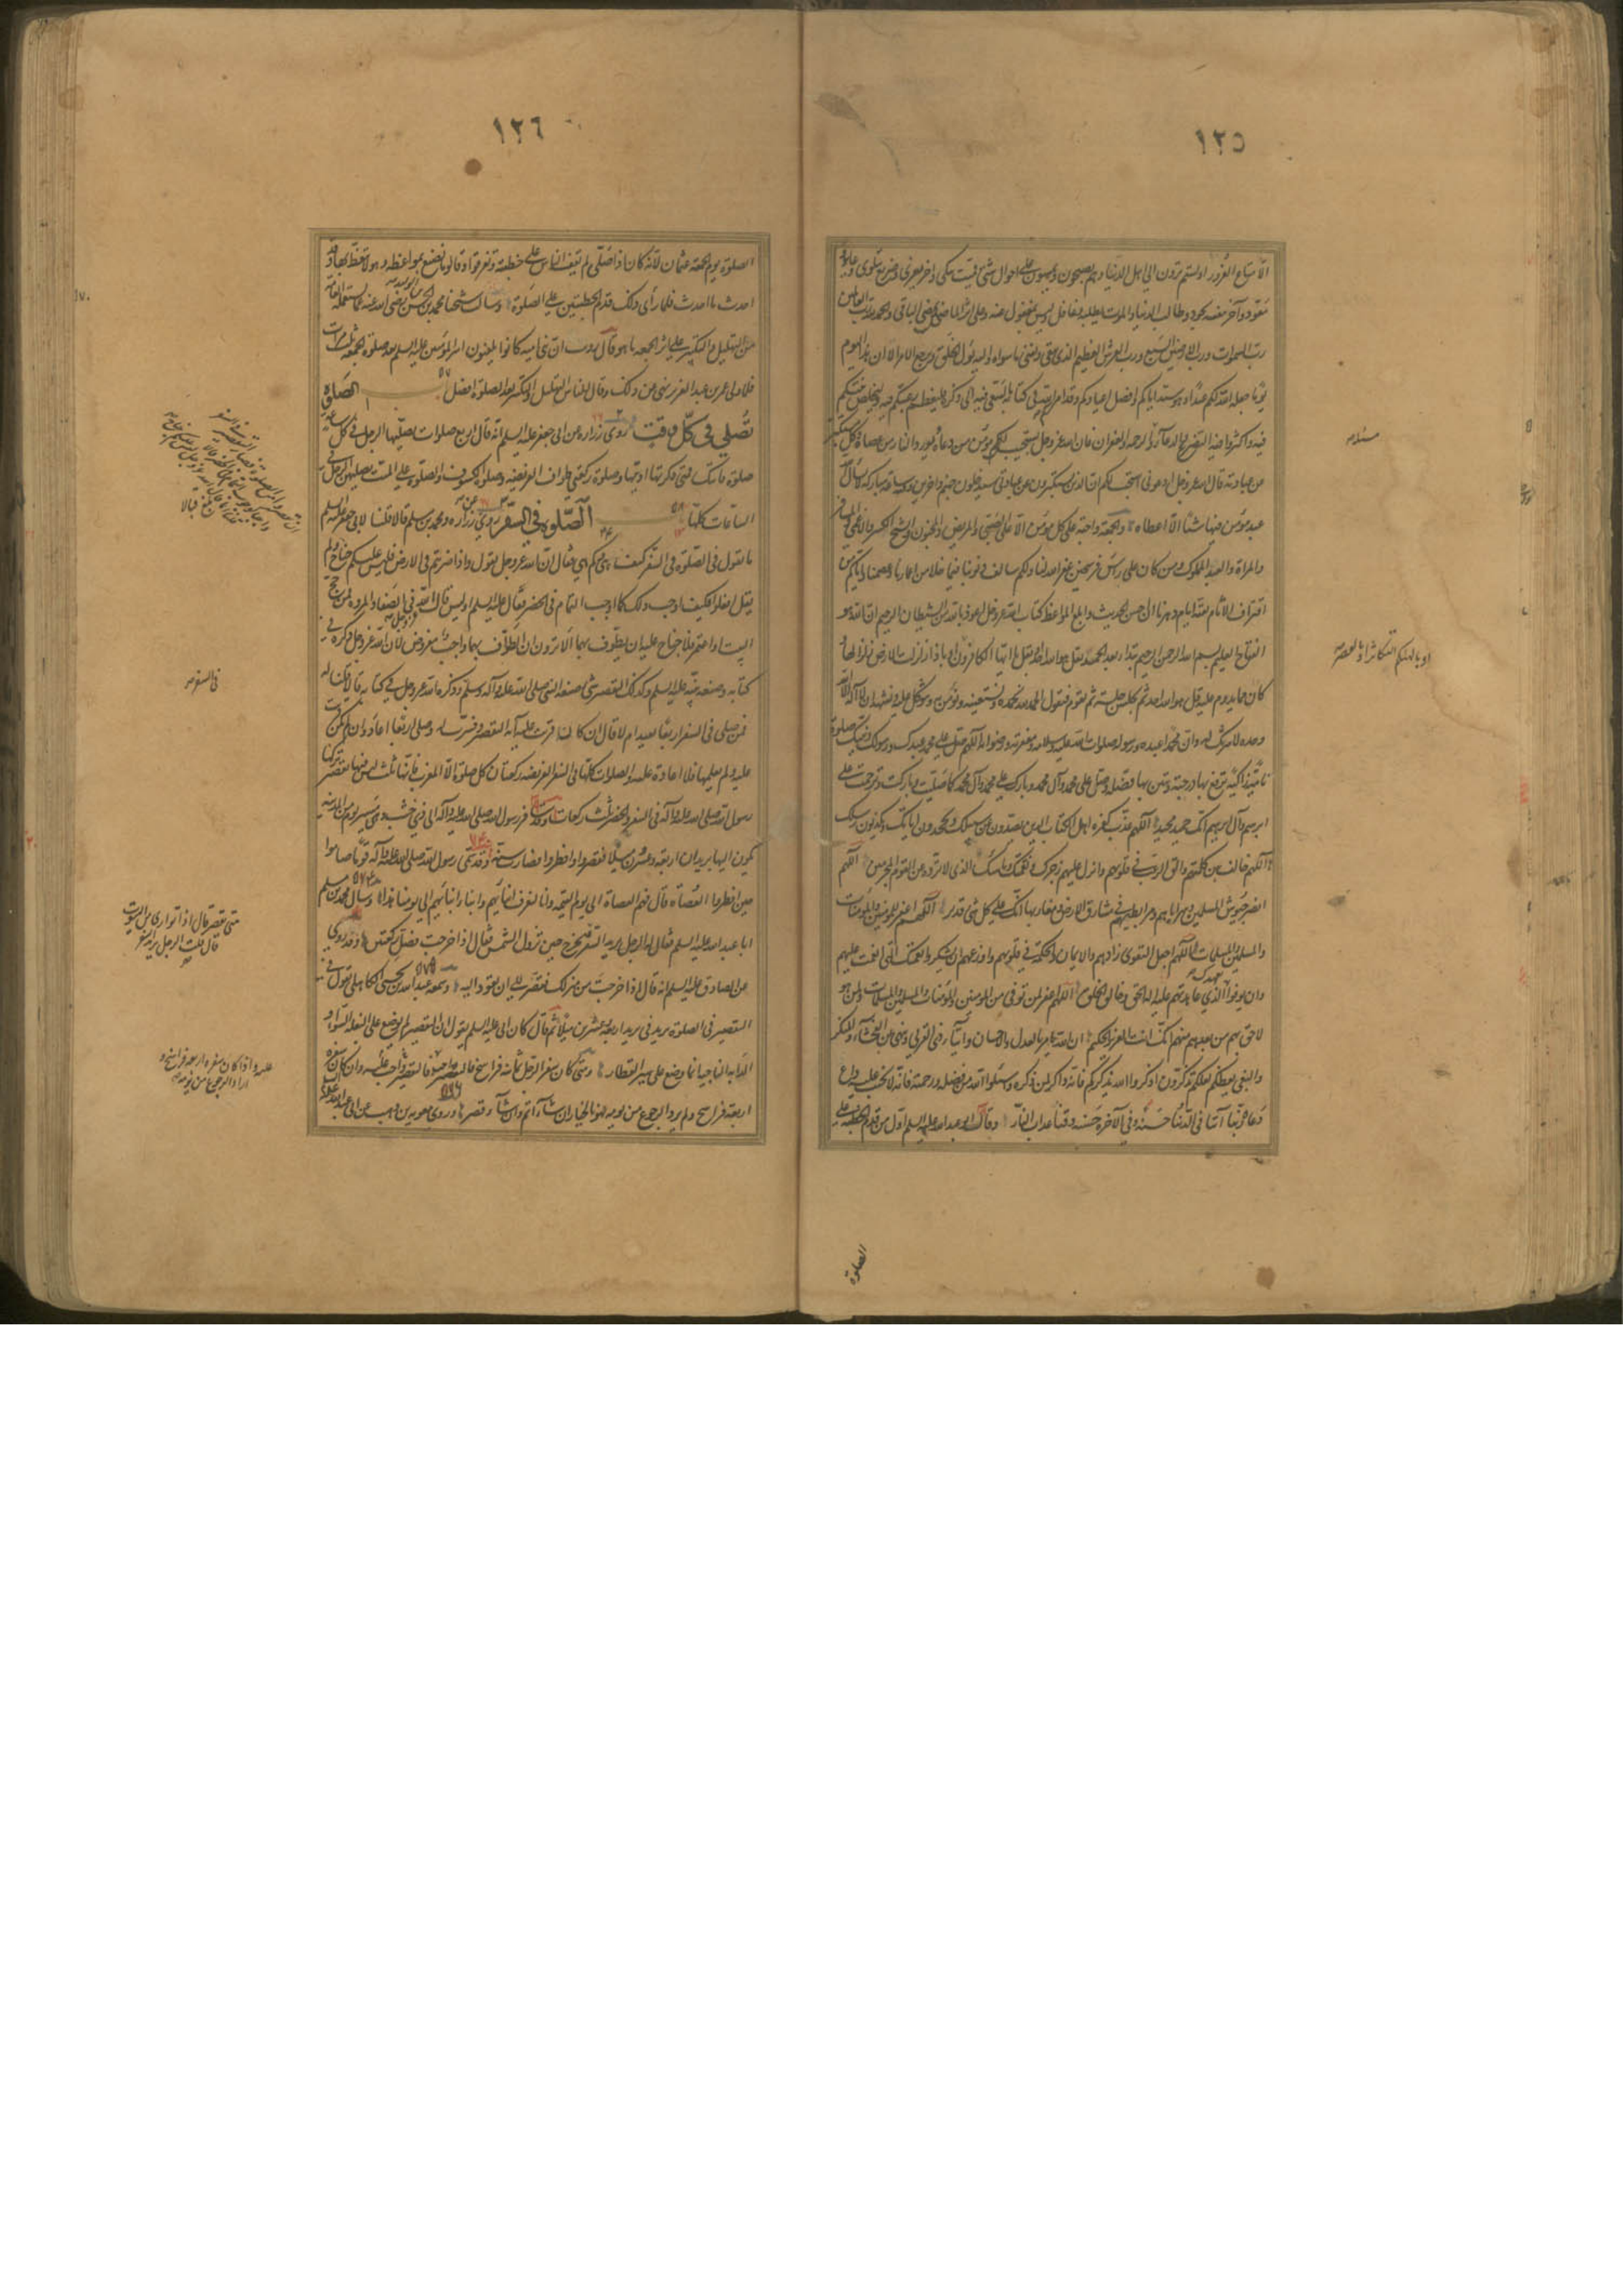 ١٢٥
الا متاع الغرور اولستم ترون الى اهل الدنيا وهم يصبحون ويمسون على احوال شتى فميت يبكى واخر يعزى وصريع يتلوى وعايد
يعود وآخر بنفسه يجود وطالب الدنيا والموت يطلبه وغافل وليس بمغفول عنه وعلى اثر الماضى يمضى الباقى والحمد لله رب العالمين
رب السموات ورب الارضين السبع ورب العرش العظيم الذى يبقى ويفنى ما سواه واليه يؤل الخلق ويرجع الامر الا ان هذا اليوم
يوم جعله الله لكم عيدا وهو سيد ايامكم وافضل اعيادكم وقد امركم الله فى كتابه بالسعى فيه الى ذكره فليعظم رغبتكم فيه
فيه واكثروا فيه التضرع والدعاء والرحمة والغفران فان الله عز وجل يستجيب لكل مؤمن دعاه ويورد النار من عصاه وكل مستكبر
عن عبادته قال الله عز وجل ادعونى استجب لكم ان الذين يستكبرون عن عبادتى سيدخلون جهنم داخرين وفيه ساعة مباركة لا يسأل الله
عبد مؤمن فيها شيئا الا اعطاه والجمعة واجبة على كل مؤمن الا على الصبى والمريض والمجنون والشيخ الكبير والاعمى والمسافر
والمراة والعبد المملوك ومن كان على راس فرسخين غفر الله لنا ولكم سالف ذنوبنا فيما خلا من اعمارنا وعصمنا واياكم من
اقتراف الآثام بقية ايام دهرنا ان احسن الحديث وابلغ المواعظ كتاب الله عز وجل اعوذ بالله من الشيطان الرجيم ان الله هو
الفتاح العليم بسم الله الرحمن الرحيم ثم يبدا بعد الحمد بقل هو الله احد او بقل يا ايها الكافرون او باذا زلزلت الارض زلزالها
او بالهيكم التكاثر او بالعصر
كان مما يدوم عليه قل هو الله احد ثم يجلس جلسة ثم يقوم فيقول الحمد لله نحمده ونستعينه ونؤمن به ونتوكل عليه ونشهد ان لا اله الا الله
وحده لا شريك له وان محمدا عبده ورسوله صلوات الله عليه وسلامه ومغفرته ورضوانه اللهم صل على محمد عبدك ورسولك ونبيك صلوة
نامية زاكية ترفع بها درجته وتبين بها فضله وصل على محمد وآل محمد وبارك على محمد وآل محمد كما صليت وباركت وترحمت على
ابرهيم وآل ابرهيم انك حميد مجيد اللهم عذب كفرة اهل الكتاب الذين يصدون عن سبيلك ويجحدون اياتك ويكذبون رسلك
اللهم خالف بين كلمتهم والق الرعب فى قلوبهم وانزل عليهم رجزك ونقمتك وباسك الذى لا ترده عن القوم المجرمين اللهم
انصر جيوش المسلمين وسراياهم ومرابطيهم فى مشارق الارض ومغاربها انك على كل شئ قدير اللهم اغفر للمؤمنين والمؤمنات
والمسلمين والمسلمات اللهم اجعل التقوى زادهم والايمان والحكمة فى قلوبهم واوزعهم ان يشكروا نعمتك التى انعمت عليهم
وان يوفوا بعهدك الذى عاهدتهم عليه اله الحق وخالق الخلق اللهم اغفر لمن توفى من المؤمنين والمؤمنات والمسلمين والمسلمات ولمن هو
لاحق بهم من بعدهم منهم انك انت العزيز الحكيم ان الله يامر بالعدل والاحسان وايتآء ذى القربى وينهى عن الفحشاء والمنكر
والبغى يعظكم لعلكم تذكرون اذكروا الله يذكركم فانه ذاكر لمن ذكره وسئلوا الله من فضله ورحمته فانه لا يخيب عليه داع
دعاه ربنا آتنا فى الدنيا حسنة وفى الآخرة حسنة وقنا عذاب النار وقال ابو عبد الله عليه السلم اول من قدم الخطبة على
الصلوة
١٢٦
الصلوة يوم الجمعة عثمان لانه كان اذا صلى لم يقف الناس على خطبته وتفرقوا وقالوا ما نصنع بمواعظه وهو لا يتعظ بها وقد
احدث ما احدث فلما رأى ذلك قدم الخطبتين على الصلوة وسالت شيخنا محمد بن الحسن بن الوليد رضى الله عنه عما يستعمله العامة
من التهليل والتكبير على اثر الجمعة ما هو فقال رويت ان بنى امية كانوا يلعنون امير المؤمنين عليه السلم بعد صلوة الجمعة ثلث مرات
فلما ولى عمر بن عبد العزيز نهى عن ذلك وقال للناس التهليل والتكبير بعد الصلوة افضل الصلوة التى
تصلى فى كل وقت روى زرارة عن ابى جعفر عليه السلم انه قال اربع صلوات يصليها الرجل فى كل ساعة
صلوة فاتتك فمتى ذكرتها اديتها وصلوة ركعتى طواف الفريضة وصلوة الكسوف والصلوة على الميت يصليهن الرجل فى
الساعات كلها ٥٨ الصلوة فى السفر روى عن زرارة ومحمد بن مسلم قالا قلنا لابى جعفر عليه السلم
ما تقول فى الصلوة فى السفر كيف هى وكم هى فقال ان الله عز وجل يقول واذا ضربتم فى الارض فليس عليكم جناح ولم
يقل افعلوا فكيف اوجب ذلك كما اوجب التمام فى الحضر فقال عليه السلم اوليس قال الله عز وجل فى الصفا والمروة فمن حج
البيت او اعتمر فلا جناح عليه ان يطوف بهما الا ترون ان الطواف بهما واجب مفروض لان الله عز وجل ذكره فى
كتابه وصنعه نبيه عليه السلم وكذلك التقصير شئ صنعه النبى صلى الله عليه وآله وسلم وذكره الله عز وجل فى كتابه قالا قلنا له
فى السفر
فمن صلى فى السفر اربعا ايعيد ام لا قال ان كان قد قرئت عليه آية التقصير وفسرت له وصلى اربعا اعاد وان لم يكن قرئت
عليه ولم يعلمها فلا اعادة عليه والصلوات كلها فى السفر الفريضة ركعتان كل صلوة الا المغرب فانها ثلث ليس فيها تقصير تركها
رسول الله صلى الله عليه وآله فى السفر والحضر ثلث ركعات وقد سافر رسول الله صلى الله عليه وآله الى ذى خشب وهى مسيرة يوم من المدينة
يكون اليها بريدان اربعة وعشرون ميلا فقصر وافطر فصارت سنة وقد سمى رسول الله صلى الله عليه وآله قوما صاموا
حين افطروا العصاة قال فهم العصاة الى يوم القيمة وانا لنعرف ابنائهم وابناء ابنائهم الى يومنا هذا وسال محمد بن مسلم
ابا عبد الله عليه السلم فقال له الرجل يريد السفر فيخرج حين تزول الشمس فقال اذا خرجت فصل ركعتين وقد روى
متى يقصر قال اذا توارى من البيوت
قال قلت الرجل يريد السفر
عن الصادق عليه السلم انه قال اذا خرجت من منزلك فقصر الى ان تعود اليه وسمعه عبد الله بن يحيى الكاهلى يقول فى
التقصير فى الصلوة بريد فى بريد اربعة وعشرين ميلا ثم قال كان ابى عليه السلم يقول ان التقصير لم يوضع على البغلة السفواء و
الدابة الناجية انما وضع على سير القطار ومتى كان سفر الرجل ثمانية فراسخ فالتقصير واجب عليه وان كان سفره
عليه واذا كان سفره اربعة فراسخ و
اراد الرجوع من يومه
اربعة فراسخ ولم يرد الرجوع من يومه فهو بالخيار ان شاء اتم وان شآء قصر وروى معوية بن وهب عن ابى عبد الله عليه